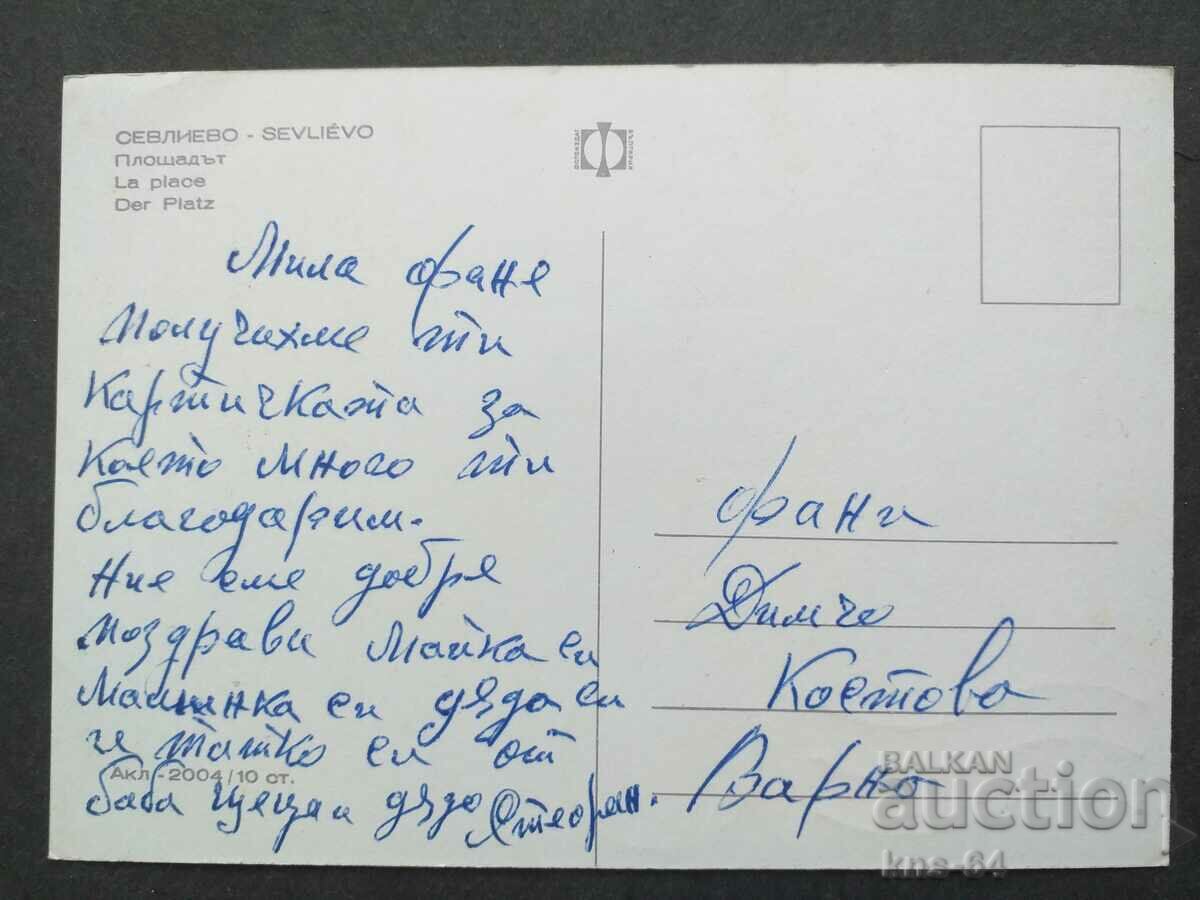 СЕВЛИЕВО - SEVLIÉVO
Площадът
La place
Der Platz
Мила фане
Получихме ти
Картичката за
Което много ти
благодарим.
Ние сме добре
Поздрави Майка си
Маминка си дядо си
и татко си от
Акл - 2004/10 ст.
баба Цеца и дядо Стефан.
Фани
Димчо
Костова
Варна
BALKAN
auction
kns-64